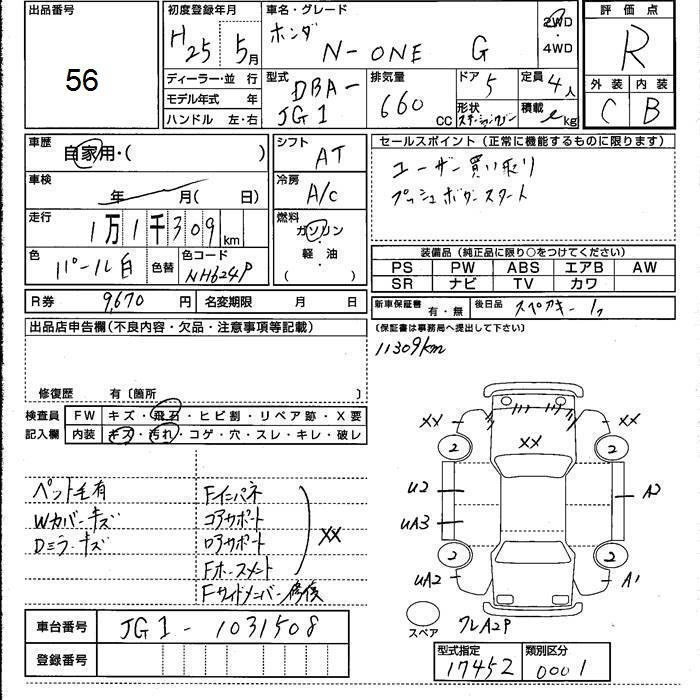 出品番号
56
初度登録年月
H25 5月
車名・グレード
ホンダ
N-ONE G
2WD
・
4WD
評価点
R
ディーラー・並 行
モデル年式 年
ハンドル 左・右
型式
DBA-
JG1
排気量
660
CC
ドア
5
形状
ステーションワゴン
定員
4人
積載
kg
外装
C
内装
B
車歴
自家用・( )
車検
年 月( 日)
走行
1万1千309km
色
パール白
色替
色コード
NH624P
シフト
AT
冷房
A/C
燃料
ガソリン
・
軽油
( )
セールスポイント(正常に機能するものに限ります)
ユーザー買い取り
プッシュボタンスタート
装備品(純正品に限り○をつけてください)
PS PW ABS エアB AW
SR ナビ TV カワ
R券 9,670円
名変期限 月 日
新車保証書 有・無
後日品 スペアキー1ヶ
出品店申告欄(不良内容・欠品・注意事項等記載)
(保証書は事務局へ提出して下さい)
11309km
修復歴 有〔箇所 〕
検査員
記入欄
FW キズ・飛石・ヒビ割・リペア跡・X要
内装 キズ・汚れ・コゲ・穴・スレ・キレ・破レ
ペット毛有
Wカバーキズ
Dミラーキズ
Fインパネ
コアサポート
ロアサポート
Fホースメント
Fサイドメンバー修復
XX
XX XX XX
2 2
U2 A2
UA3
2 2
UA2 A1
スペア
フレA2P
車台番号 JG1-1031508
登録番号
型式指定
17452
類別区分
0001